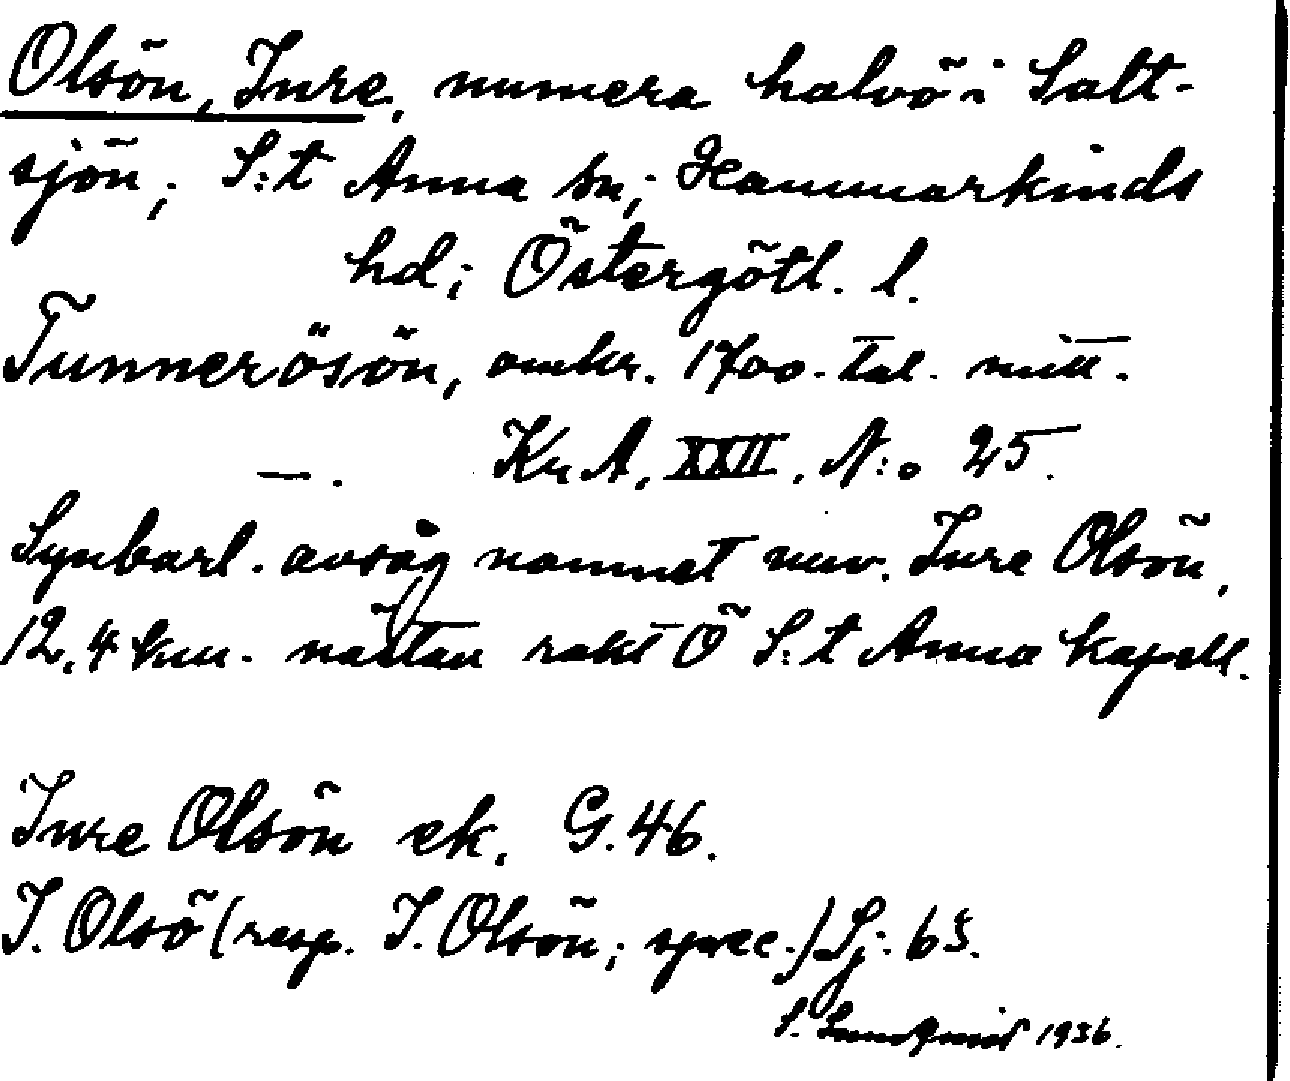 Olsön, Inre, numera halvö i Salt-
sjön; S:t Anna sn; Hammarkinds
hd; Östergötl. l.
Tunnerösön, omkr. 1700-tal. mitt.
—. Kr A, XXII, N:o 25.
Synbarl. avsåg namnet nuv. Inre Olsön,
12,4 km. nästan rakt Ö S:t Anna kapell.
Inre Olsön ek. G. 46.
I. Olsö (resp. I. Olsön; spec.) Sj. 65.
S. Lundqvist 1936.